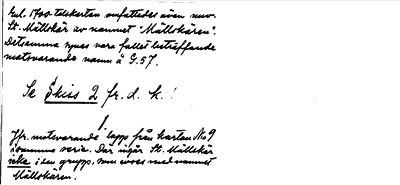 Enl. 1700-talskartan omfattades även nuv.
St. Mällskär av namnet "Mällskären".
Detsamma synes vara fallet beträffande
motsvarande namn å G.57.
Se Skiss 2 fr. d. k.!
Jfr. motsvarande lapp från kartan No 9
i samma serie. Där ingår St. Mällskär
icke i den grupp, som avses med namnet
Mällskären.